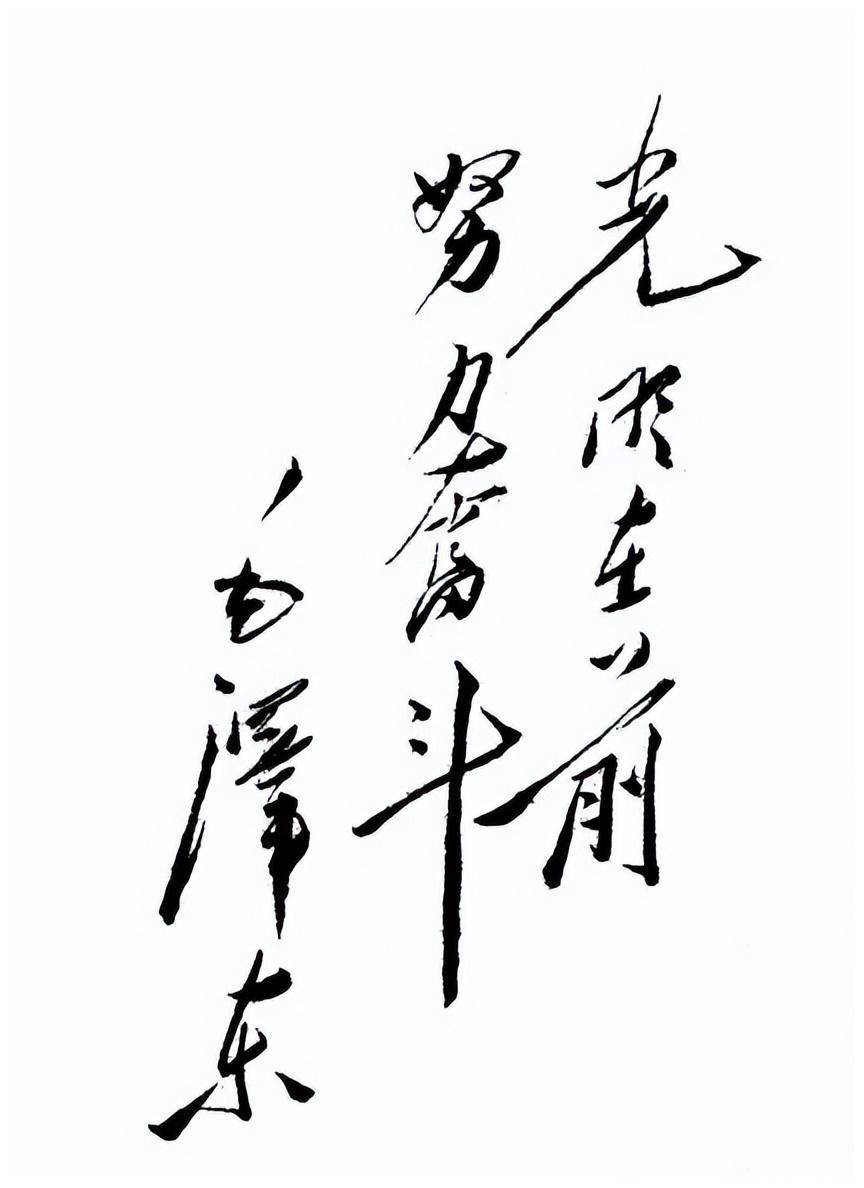 光明在前
努力奋斗
毛泽东